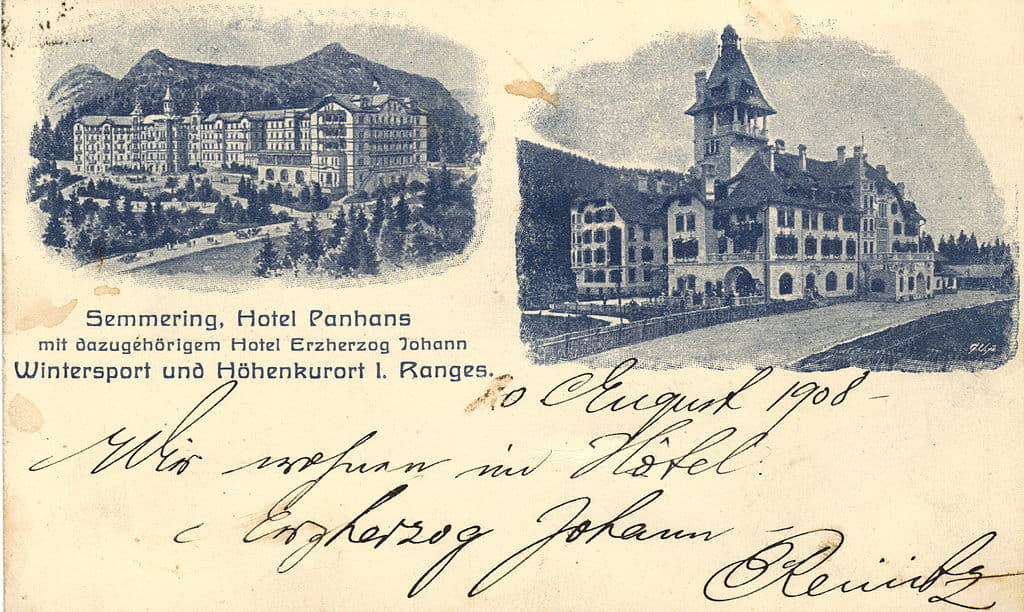 Semmering, Hotel Panhans
mit dazugehörigem Hotel Erzherzog Johann
Wintersport und Höhenkurort I. Ranges.
August 1908 –
Wir wohnen im Hôtel
Erzherzog Johann –